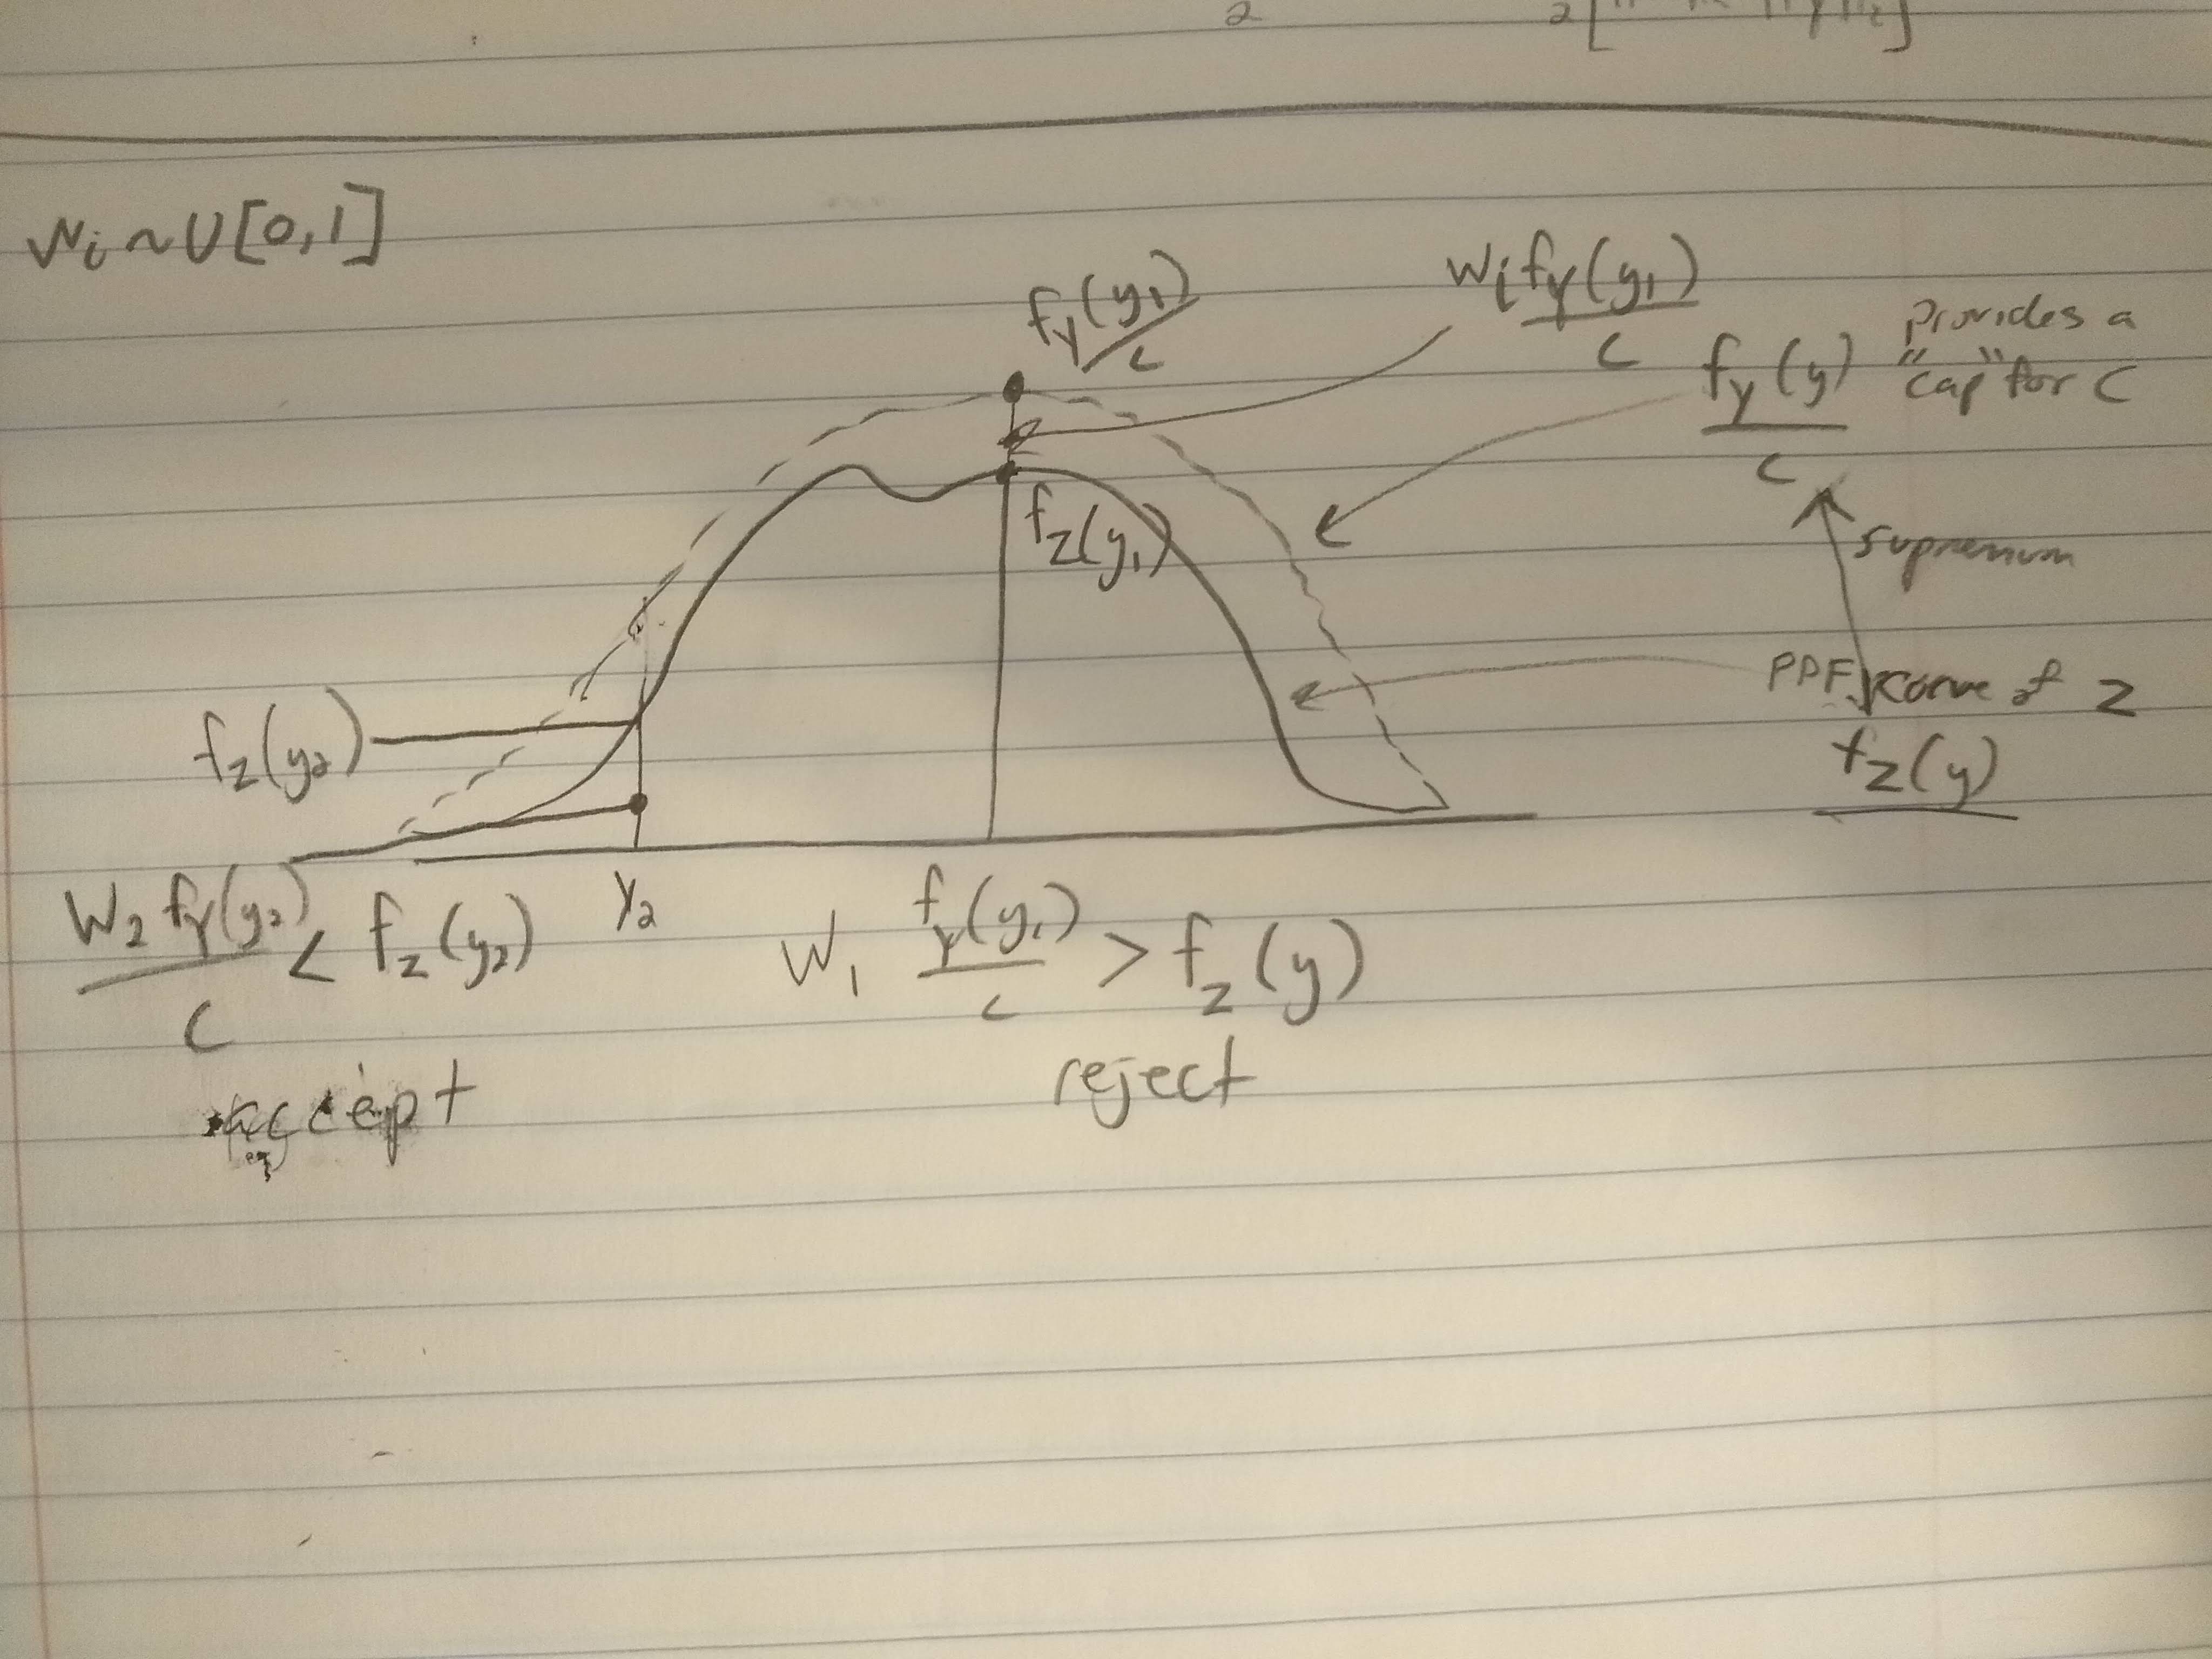 Wi ~ U[0,1]
fy(y1)/c
Wi fy(y1)/c
fy(y)/c provides a "cap" for C
supremum
fz(y1)
PDF curve of Z
fz(y)
fz(y2)
y2
W2 fy(y2)/c < fz(y2)
accept
W1 fy(y1)/c > fz(y)
reject